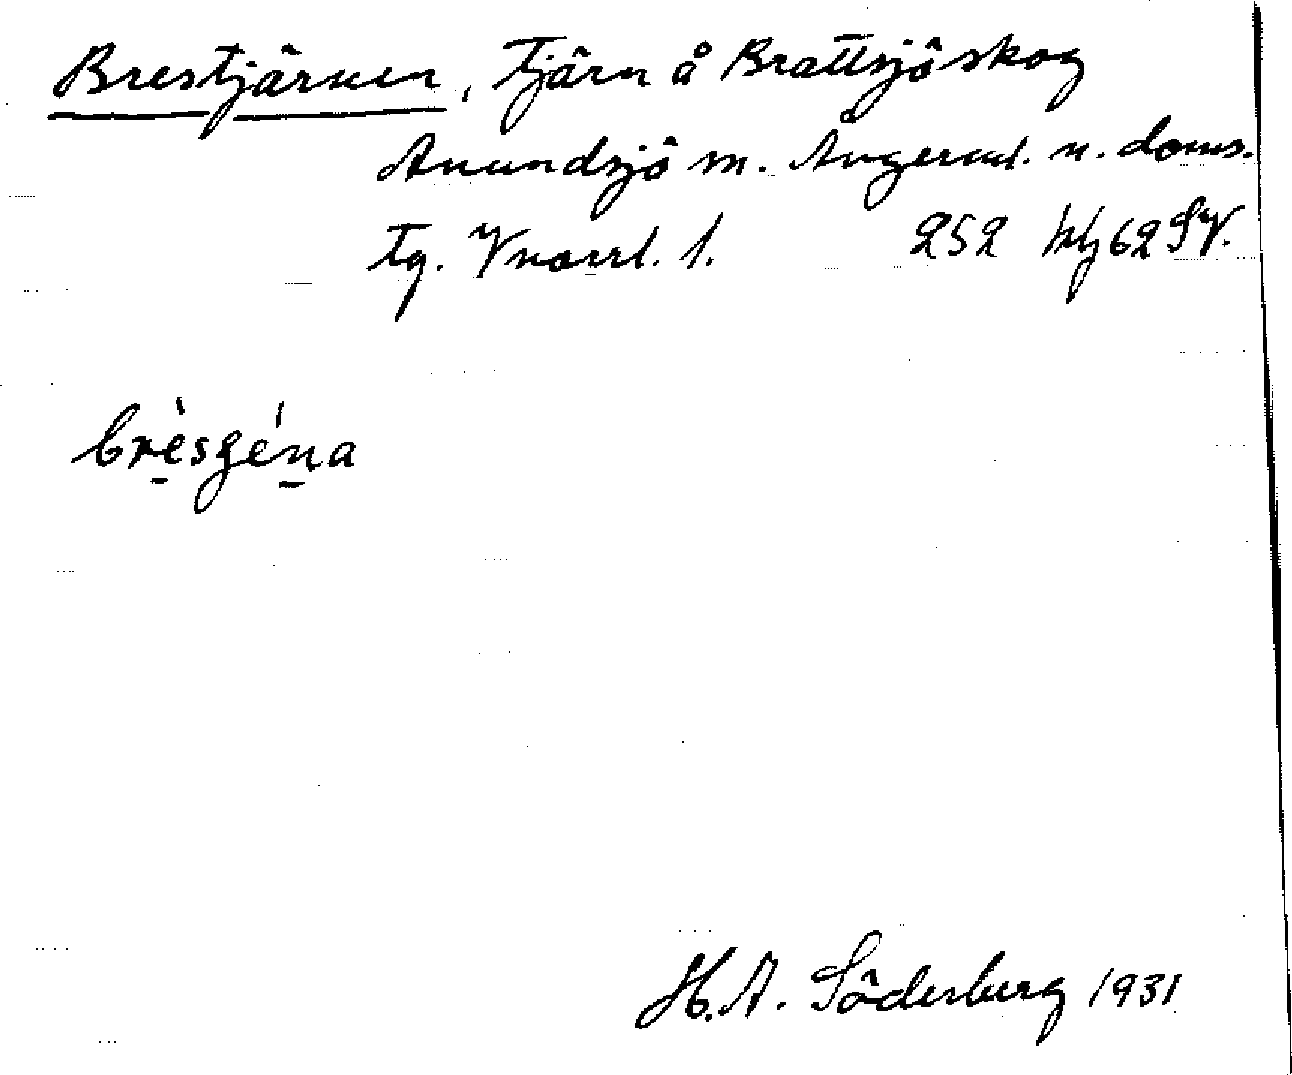 Brestjärnen, tjärn å Brattsjöskog
Anundsjö sn. Ångerml. n. doms.
tg. Vnorrl. l. 252 hlz 62 SV.
brèsgéna
H.A. Söderberg 1931